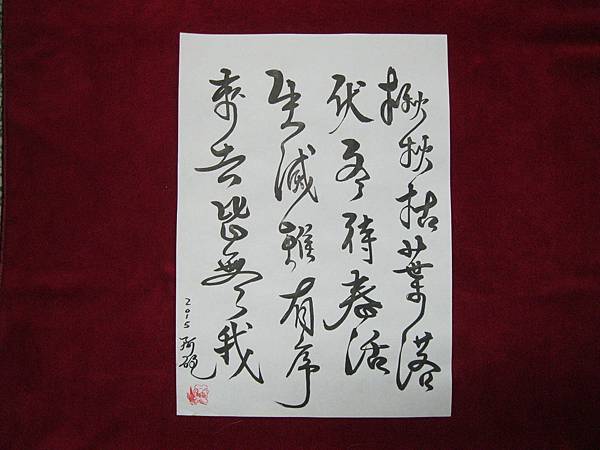 楸枯葉落
伏冬待春活
生滅雖有序
來去皆無我
2015 阿